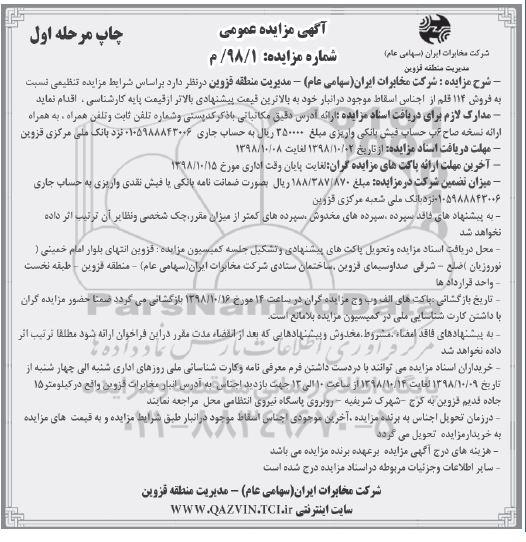 آگهی مزایده عمومی
شماره مزایده: ۹۸/۱/ م
چاپ مرحله اول
شرکت مخابرات ایران (سهامی عام)
مدیریت منطقه قزوین
– شرح مزایده : شرکت مخابرات ایران(سهامی عام) – مدیریت منطقه قزوین درنظر دارد براساس شرایط مزایده تنظیمی نسبت
به فروش ۱۱۴ قلم از اجناس اسقاط موجود درانبار خود به بالاترین قیمت پیشنهادی بالاتر ازقیمت پایه کارشناسی ، اقدام نماید
– مدارک لازم برای دریافت اسناد مزایده :ارائه آدرس دقیق مکاتباتی باذکرکدپستی وشماره تلفن ثابت وتلفن همراه ، به همراه
ارائه نسخه صاحب حساب فیش بانکی واریزی مبلغ ۳۵۰۰۰۰ ریال به حساب جاری ۰۱۰۵۹۸۸۸۴۳۰۰۶ نزد بانک ملی مرکزی قزوین
– مهلت دریافت اسناد مزایده: ازتاریخ ۱۳۹۸/۱۰/۰۲ لغایت ۱۳۹۸/۱۰/۰۸
– آخرین مهلت ارائه پاکت های مزایده گران:لغایت پایان وقت اداری مورخ ۱۳۹۸/۱۰/۱۵
– میزان تضمین شرکت درمزایده: مبلغ ۱۸۸/۳۸۷/۸۷۰ ریال بصورت ضمانت نامه بانکی یا فیش نقدی واریزی به حساب جاری
۰۱۰۵۹۸۸۸۴۳۰۰۶نزدبانک ملی شعبه مرکزی قزوین
– به پیشنهاد های فاقد سپرده ،سپرده های مخدوش ،سپرده های کمتر از میزان مقرر،چک شخصی ونظایر آن ترتیب اثر داده
نخواهد شد
– محل دریافت اسناد مزایده وتحویل پاکت های پیشنهادی وتشکیل جلسه کمیسیون مزایده : قزوین انتهای بلوار امام خمینی (
نوروزیان )ضلع – شرقی صداوسیمای قزوین ،ساختمان ستادی شرکت مخابرات ایران(سهامی عام) – منطقه قزوین – طبقه نخست
– واحد قرارداد ها
– تاریخ بازگشائی :پاکت های الف وب وج مزایده گران در ساعت ۱۴ مورخ ۱۳۹۸/۱۰/۱۶ بازگشائی می گردد ضمنا حضور مزایده گران
با داشتن کارت شناسایی ملی در کمیسیون مزایده بلامانع است.
– به پیشنهادهای فاقد امضاء ،مشروط،مخدوش وپیشنهادهایی که بعد از انقضاء مدت مقرر دراین فراخوان ارائه شود مطلقا ترتیب اثر
داده نخواهد شد
– خریداران اسناد مزایده می توانند با دردست داشتن فرم معرفی نامه وکارت شناسائی ملی روزهای اداری شنبه الی چهار شنبه از
تاریخ ۱۳۹۸/۱۰/۰۹ لغایت ۱۳۹۸/۱۰/۱۴ از ساعت ۱۰ الی ۱۳ جهت بازدید اجناس به آدرس انبار مخابرات قزوین واقع درکیلومتر۱۵
جاده قدیم قزوین به کرج –شهرک شریفیه – روبروی پاسگاه نیروی انتظامی محل مراجعه نمایند
– درزمان تحویل اجناس به برنده مزایده ،آخرین موجودی اجناس اسقاط موجود درانبار طبق شرایط مزایده و به قیمت های مزایده
به خریدارمزایده تحویل می گردد
– هزینه های درج آگهی مزایده برعهده برنده مزایده می باشد
– سایر اطلاعات وجزئیات مربوطه دراسناد مزایده درج شده است
شرکت مخابرات ایران(سهامی عام) – مدیریت منطقه قزوین
سایت اینترنتی WWW.QAZVIN.TCI.ir
ParsNamadData
۰۲۱-۸۸۳۴۹۶۷۰-۵